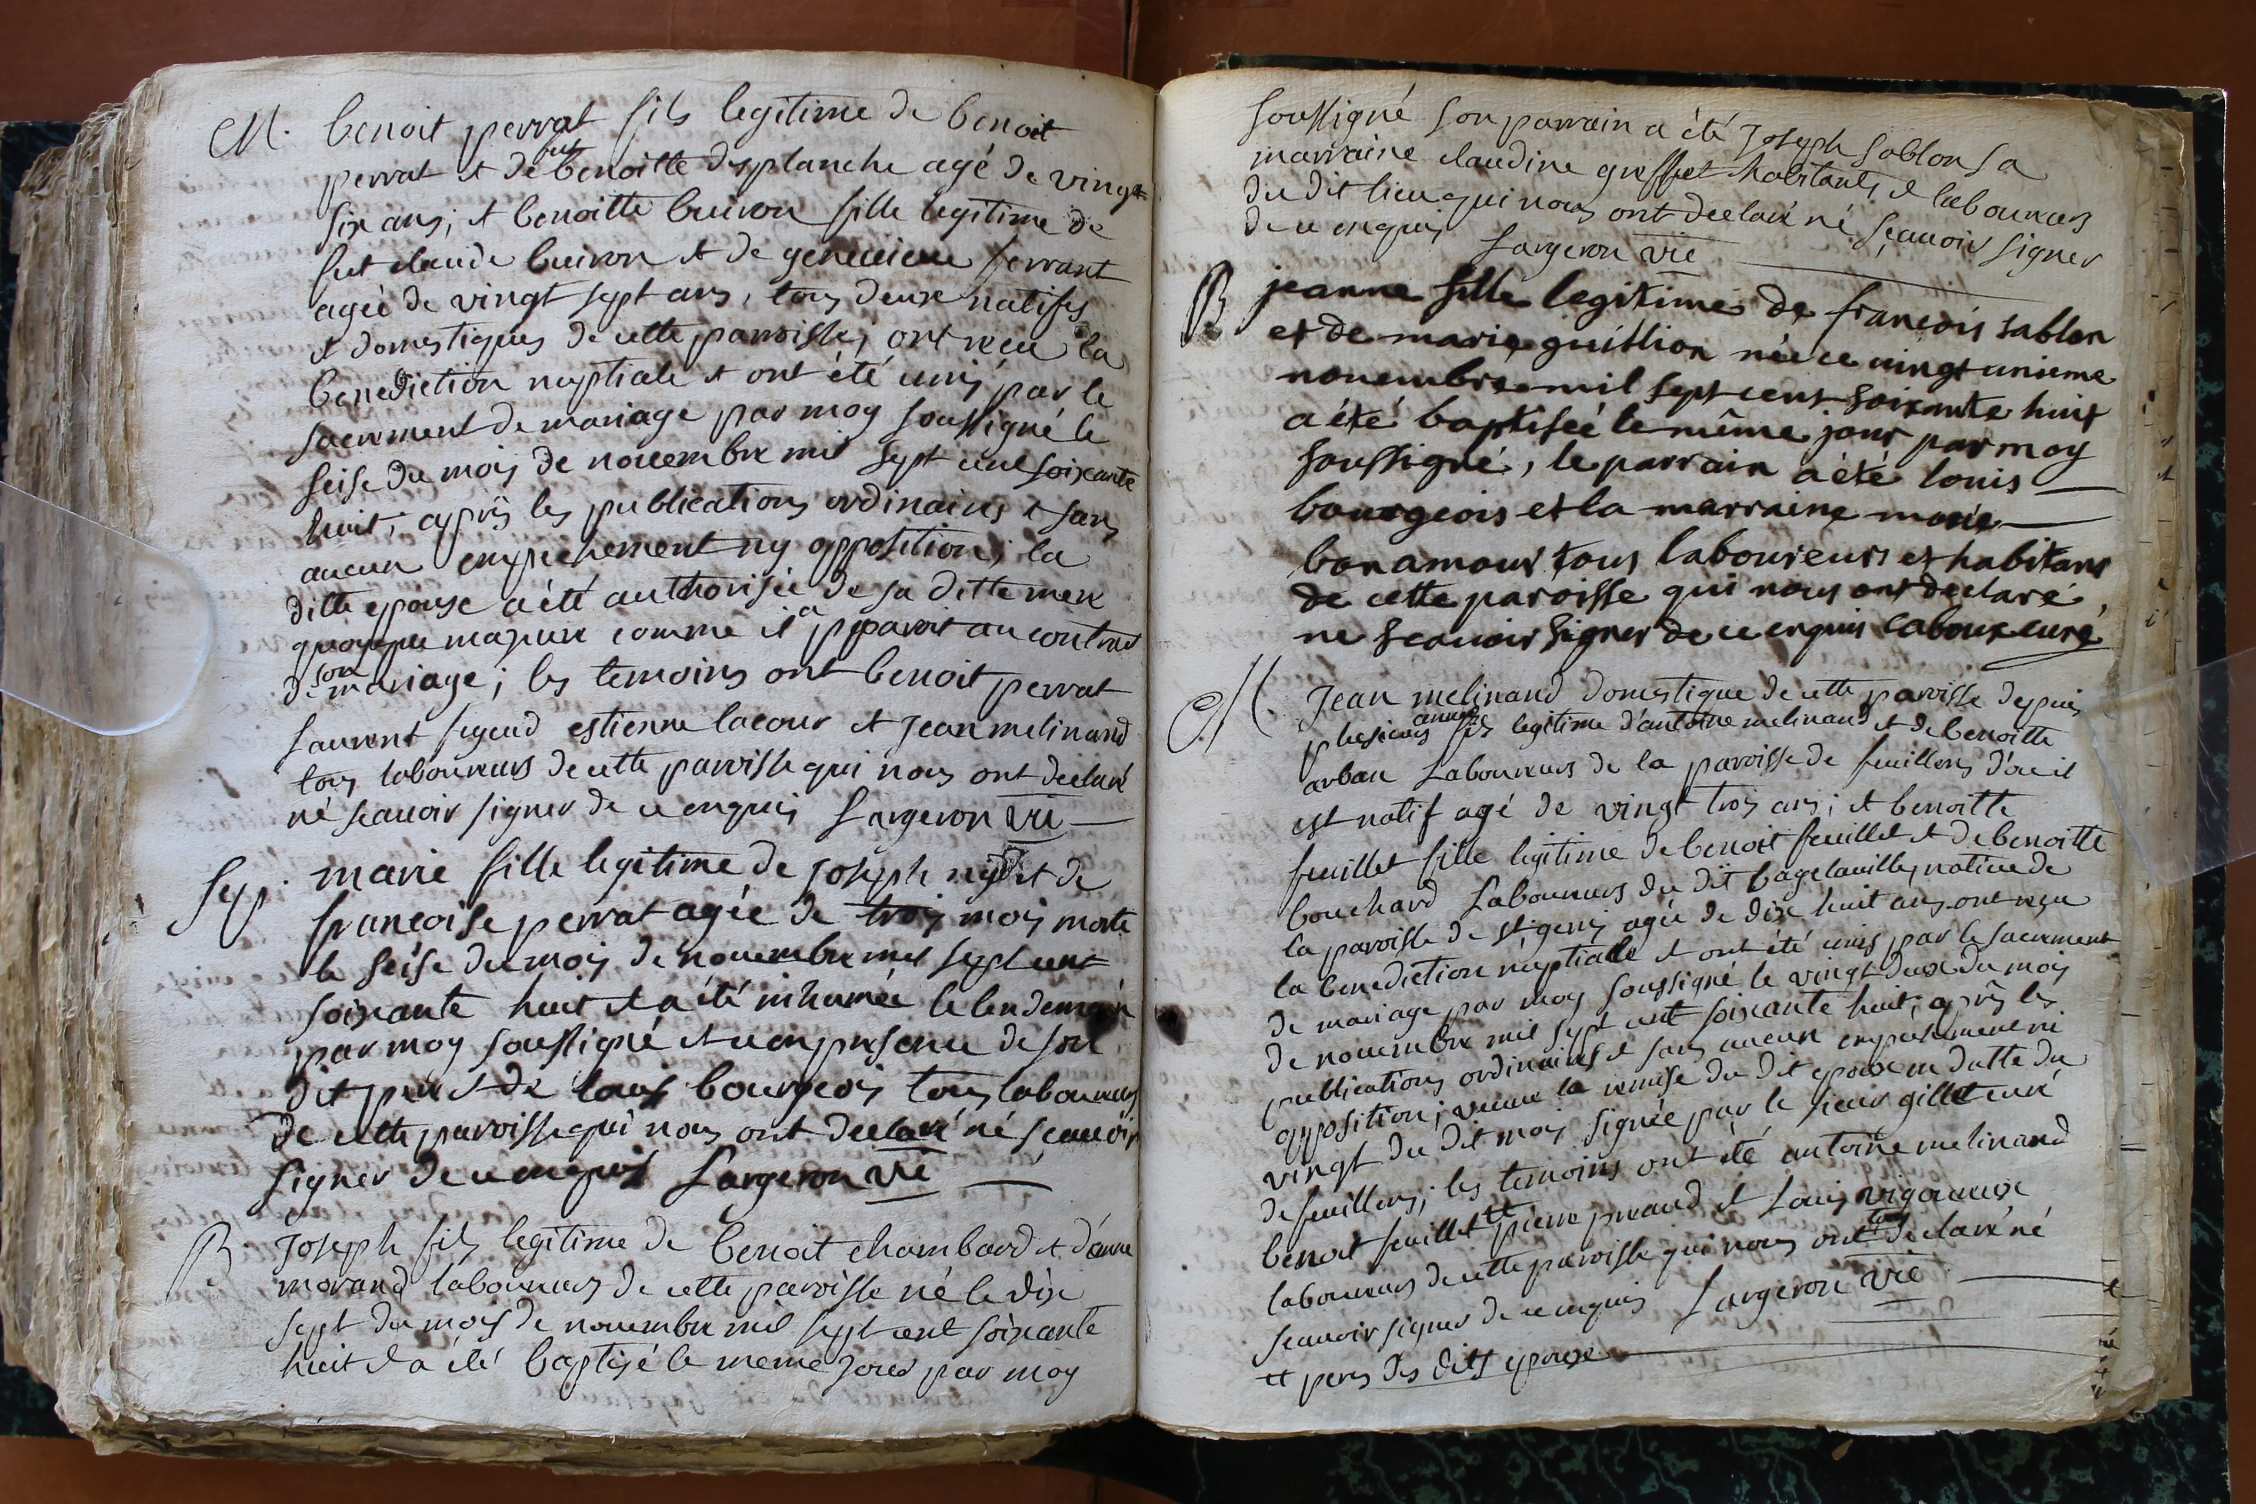 M. benoit perrat fils legitime de benoit
perrat et de fut benoitte desplanche agé de vingt
six ans, et benoitte buiron fille legitime de
fut claude buiron et de genevieve ferrant
agée de vingt sept ans, tous deux natifs
et domestiques de cette parroisse, ont recu la
benediction nuptiale et ont été unis par le
sacrement de mariage par moy soussigné le
seise du mois de novembre mil sept cent soixante
huit, après les publications ordinaires et sans
aucun empechement ny opposition, la
ditte epouse a été authorisée de sa ditte mere
quoyque majeure comme il apparoit au contract
de son mariage; les temoins ont benoit perrat
laurent estienne lacour et Jean melinand
tous laboureurs de cette paroisse qui nous ont declaré
né scauoir signer de ce enquis Largeron vic
Sep. marie fille legitime de Joseph et de
francoise perrat agée de trois mois morte
le seise du mois de nouembre mil sept cent
soixante huit et a été inhumée le lendemain
par moy soussigné et ce en presence de son
dit pere et de louis bourgeois tous laboureurs
de cette paroisse qui nous ont declaré né scauoir
signer de ce enquis Largeron vic
B Joseph fils legitime de benoit chambard et d'anne
morand laboureurs de cette paroisse né le dix
sept du mois de nouembre mil sept cent soixante
huit et a été baptisé le meme jour par moy
soussigné son parrain a été Joseph sablon sa
marraine claudine greffet habitants et laboureurs
du dit lieu qui nous ont declaré né sçauoir signer
de ce enquis Largeron vic
B jeanne fille legitime de francois sablon
et de marie guillion née ce vingt unieme
nouembre mil sept cent soixante huit
a été baptisée le même jour par moy
soussigné, le parrain a été louis
bourgeois et la marraine marie
bonamour tous laboureurs et habitans
de cette paroisse qui nous ont declaré,
ne scauoir signer de ce enquis caboux curé
M. Jean melinand domestique de cette paroisse depuis
plusieurs années fils legitime d'antoine melinand et de benoitte
arban Laboureurs de la paroisse de feuillens d'ou il
est natif agé de vingt trois ans; et benoitte
feuillet fille legitime de benoit feuillet et de benoitte
bouchard Laboureurs du dit bagelauille, natiue de
la paroisse de st genis agée de dix huit ans ont reçu
la benediction nuptiale et ont été unis par le sacrement
de mariage par moy soussigné le vingt deux du mois
de nouembre mil sept cent soixante huit, après les
publications ordinaires et sans aucun empechement ni
opposition; vue la remise du dit epoux en datte du
vingt du dit mois signée par le sieur gillet curé
de feuillens; les temoins ont été antoine melinand
benoit feuillet tt pierre preaud et Louis vigoureux
laboureurs de cette paroisse qui nous ont tous declaré né
scauoir signer de ce enquis Largeron vic
tt peres des dits epoux